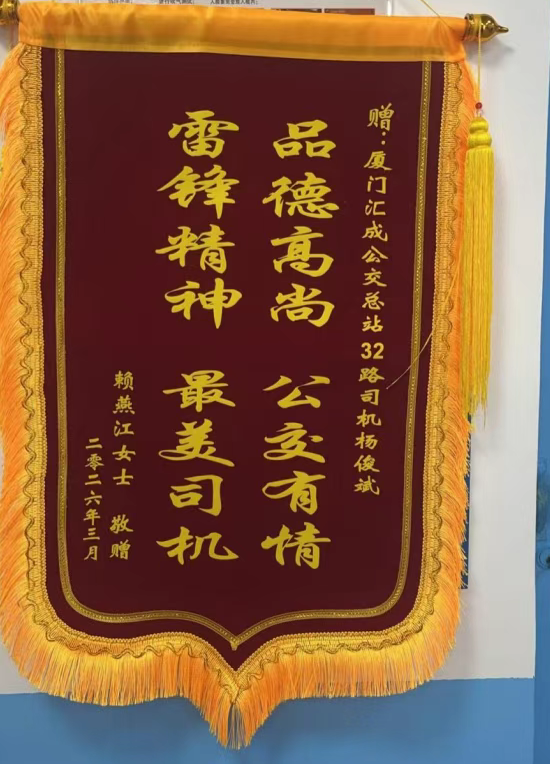 赠：厦门汇成公交总站32路司机杨俊斌
品德高尚 公交有情
雷锋精神 最美司机
赖燕江女士 敬赠
二零二六年三月